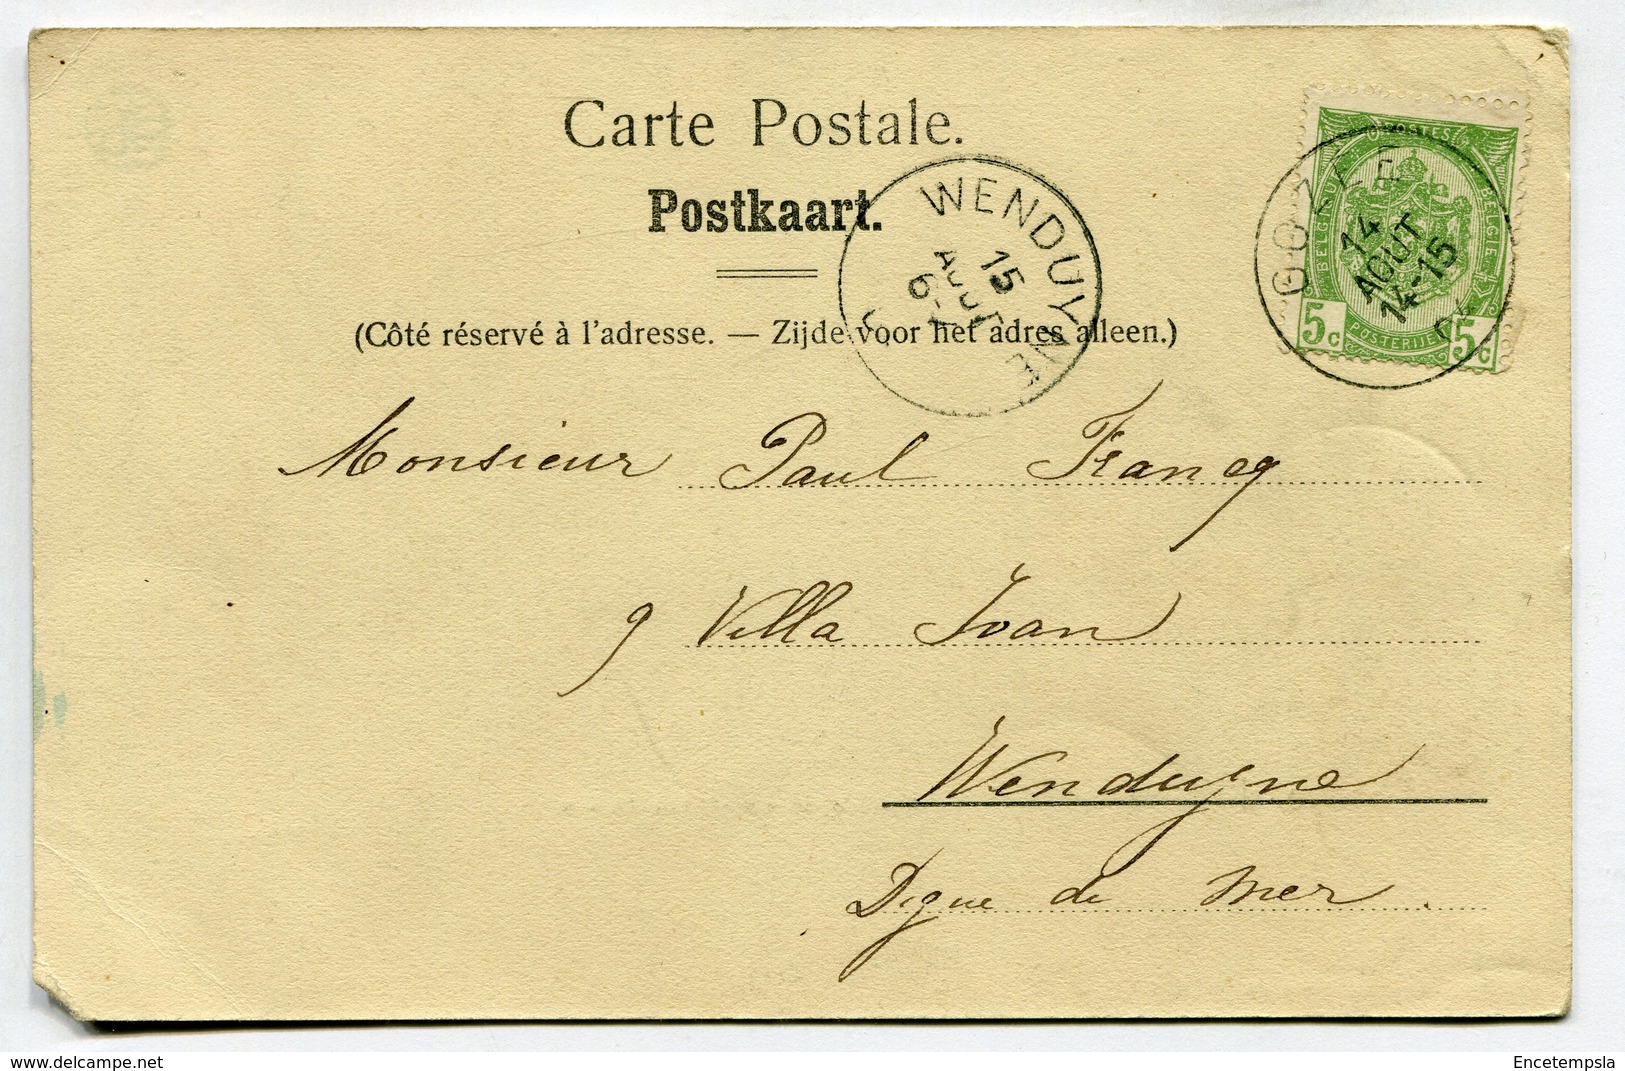 Carte Postale.
Postkaart.
(Côté réservé à l'adresse. — Zijde voor het adres alleen.)
WENDUYNE
15
AOUT
6-
GOZEE
14
AOUT
14-15
BELGIQUE
BELGIE
POSTERIJEN
5c 5c
Monsieur Paul Francq
9 Villa Ivan
Wenduyne
Digue de Mer.
delcampe.net
Encetempsla